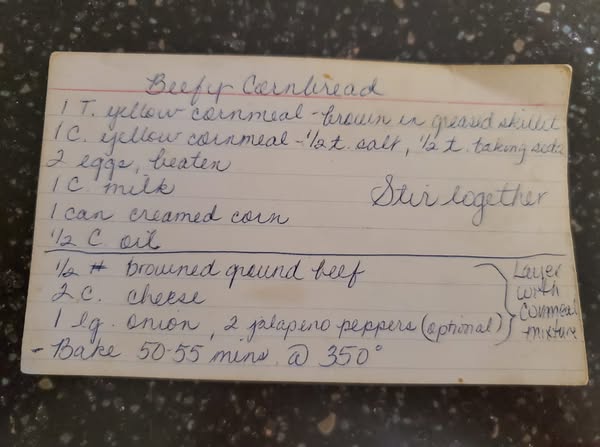 Beefy Cornbread
1 T. yellow cornmeal - brown in greased skillet
1 C. yellow cornmeal - 1/2 t. salt, 1/2 t. baking soda
2 eggs, beaten
1 C. milk
Stir together
1 can creamed corn
1/2 C. oil
1/2 # browned ground beef
2 C. cheese
1 lg. onion, 2 jalapeno peppers (optional)
Layer
with
Cornmeal
mixture
- Bake 50-55 mins. @ 350°